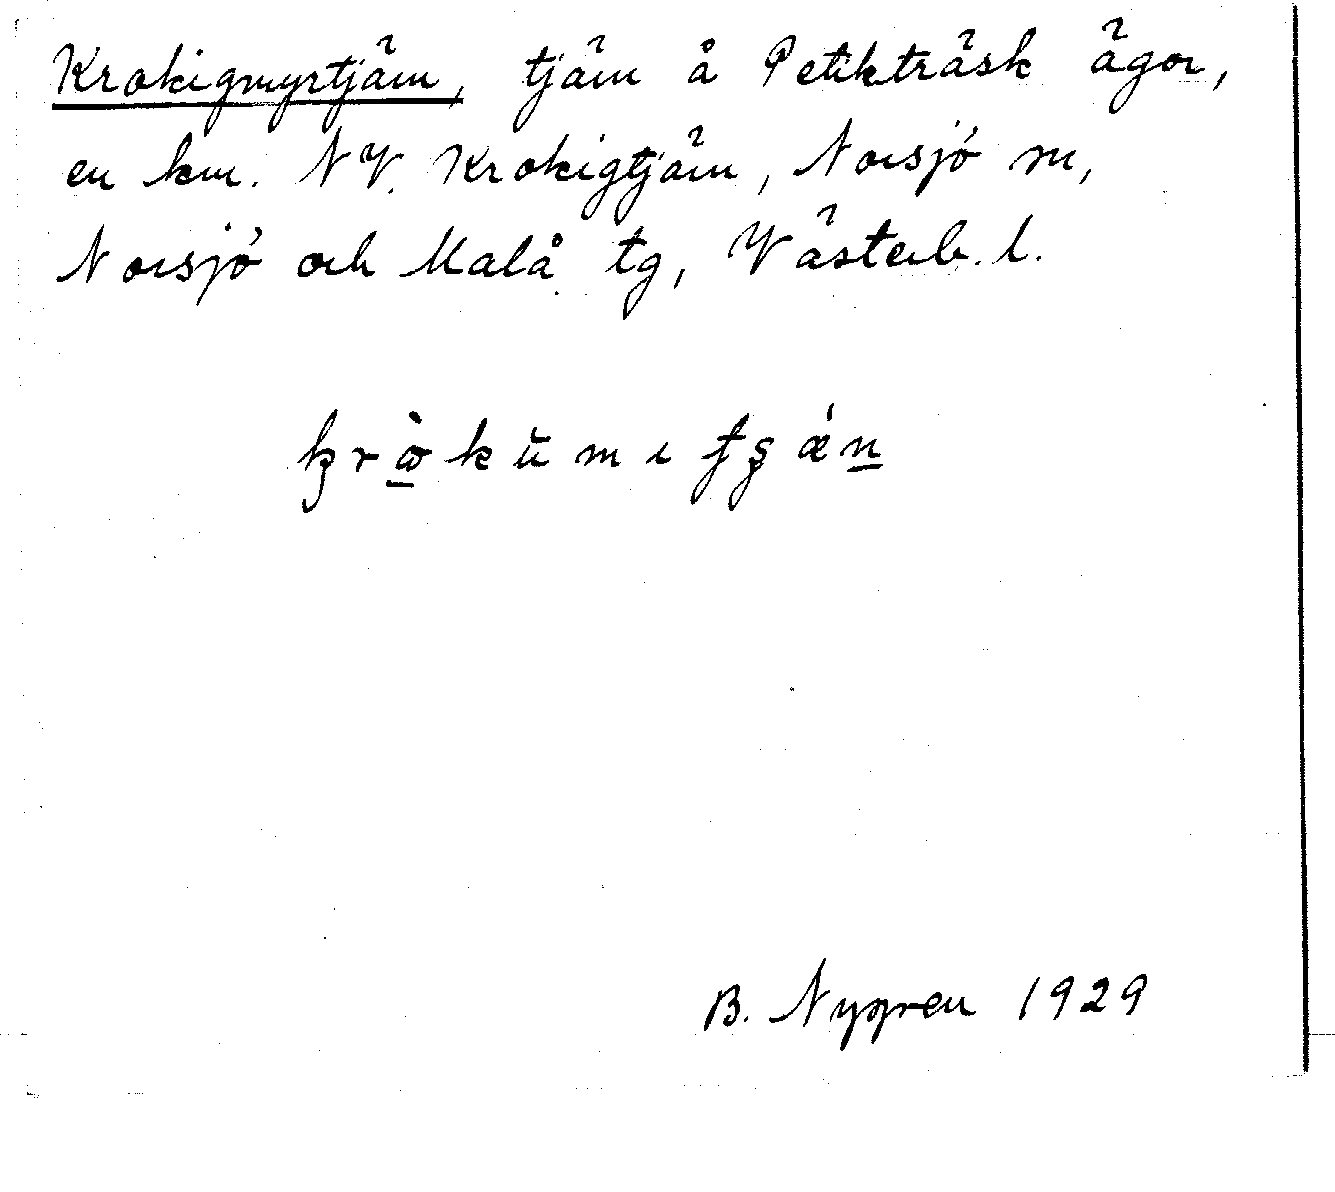 Krokigmyrtjärn, tjärn å Petikträsk ägor,
en km. NV. Krokigtjärn, Norsjö sn,
Norsjö och Malå tg, Västerb. l.
B. Nygren 1929